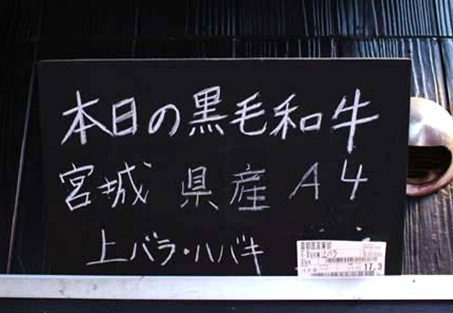 本日の黒毛和牛
宮城県産A4
上バラ・ハバキ
上バラ
17.3